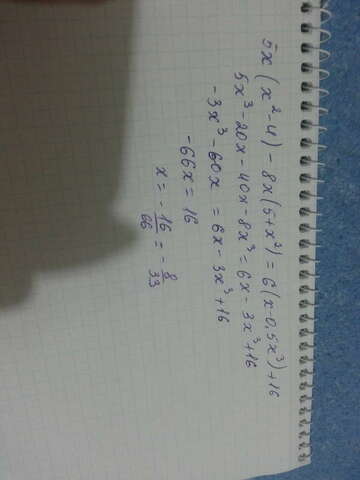 5x (x² - 4) - 8x(5 + x²) = 6(x - 0,5x³) + 16
5x³ - 20x - 40x - 8x³ = 6x - 3x³ + 16
-3x³ - 60x = 6x - 3x³ + 16
-66x = 16
x = - 16/66 = - 8/33